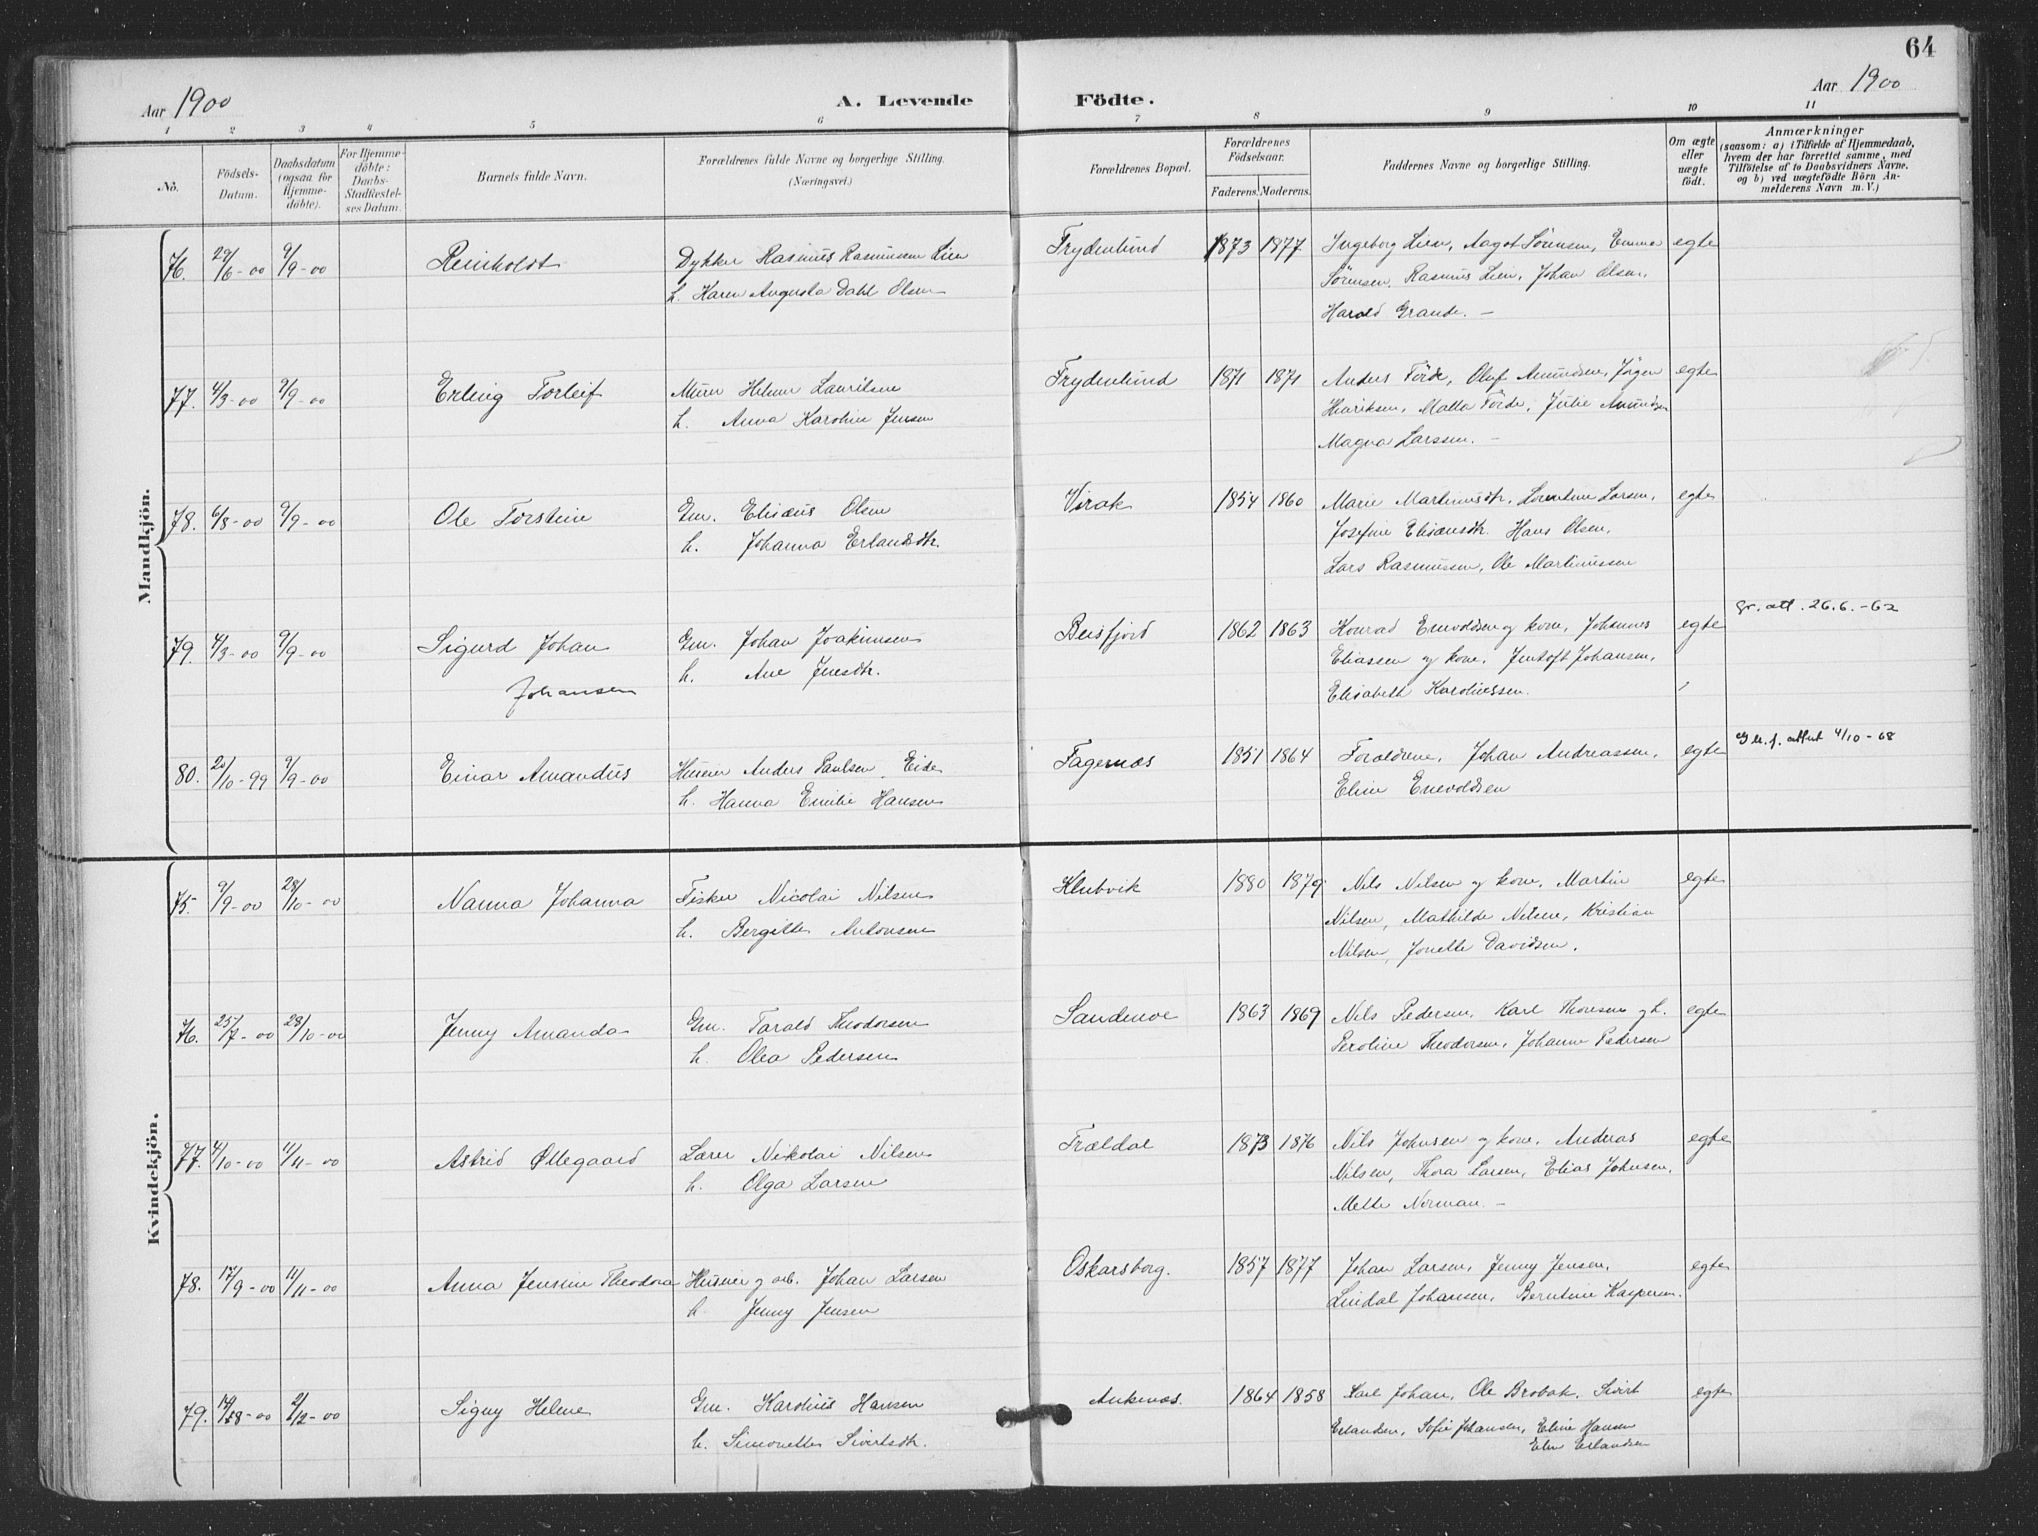 64
Aar 1900 A. Levende Födte. Aar 1900
1 2 3 4 5 6 7 8 9 10 11
No.
Födsels-Datum.
Daabsdatum (ogsaa for Hjemme-döbte).
For Hjemme-döbte: Daabs-Stadfæstel-ses Datum.
Barnets fulde Navn.
Forældrenes fulde Navne og borgerlige Stilling.
(Næringsvei.)
Forældrenes Bopæl.
Forældrenes Födselsaar.
Faderens. Moderens.
Faddernes Navne og borgerlige Stilling.
Om ægte eller uægte födt.
Anmærkninger
(saasom: a) i Tilfælde af Hjemmedaab,
hvem der har forrettet samme, med
Tilföielse af to Daabsvidners Navne.
og b) ved uægtefödte Börn An-
melderens Navn m. V.)
Mandkjön.
76. 29/6-00 9/9-00 Reinholdt Dykker Rasmus Rasmussen Lien Frydenlund 1873 1877 Ingeborg Lien, Aagot Sörensen, Emma egte
h. Karen Augusta Dahl Olsen Sörensen, Rasmus Lien, Johan Olsen,
Harald Grande. –
77. 4/3-00 9/9-00 Erling Torleif Murer Helmer Lauritsen Frydenlund 1871 1871 Anders Förde, Oluf Amundsen, Jörgen egte
h. Anna Karoline Jensen Henriksen, Matta Förde, Julie Amundsen
Magna Larssen. –
78. 6/8-00 9/9-00 Ole Torstein Gm. Elisæus Olsen Virak 1854 1860 Marie Martinusdtr, Lorentine Larsen, egte
h. Johanna Erlandsdtr. Josefine Elisæusdtr. Hans Olsen,
Lars Rasmussen, Ole Martinussen
gr. att. 26.6.-62
79. 4/3-00 9/9-00 Sigurd Johan Gm. Johan Joakimsen Beisfjord 1862 1863 Konrad Enevoldsen og kone, Johannes egte
h. Ane Jensdtr. Eliassen og kone, Jentoft Johansen,
Johansen Elisabeth Karoliussen.
80. 20/10-99 9/9-00 Einar Amandus Husmr Anders Paulsen Eide Fagernæs 1851 1864 Forældrene, Johan Andreassen, egte attest 4/10-68
h. Hanna Emilie Hansen Eline Enevoldsen
Kvindekjön.
75. 9/9-00 28/10-00 Nanna Johanna Fisker Nicolai Nilsen Klubvik 1880 1879 Nils Nilsen og kone, Martin egte
h. Bergitte Antonsen Nilsen, Mathilde Nilsen, Kristian
Nilsen, Jonette Davidsen.
76. 25/7-00 28/10-00 Jenny Amanda Gm. Tarald Theodorsen Sandmoe 1863 1869 Nils Pedersen, Karl Thoresen og h. egte
h. Olea Pedersen Peroline Theodorsen, Johanne Pedersen
77. 4/10-00 11/11-00 Astrid Øllegaard Lærer Nikolai Nilsen Trældal 1873 1876 Nils Johnsen og kone, Anderas egte
h. Olga Larsen Nilsen, Thora Larsen, Elias Johnsen,
Mette Norman. –
78. 17/9-00 11/11-00 Anna Jensine Theodora Husmr og arb. Johan Larsen Oskarsborg. 1857 1877 Johan Larsen, Jenny Jensen, egte
h. Jenny Jensen Lindal Johansen, Berntine Kaspersen.
79. 14/8-00 2/12-00 Signy Helene Gm. Karolius Hansen Ankenæs. 1864 1858 Karl Johan, Ole Brobak, Sivert egte
h. Simonette Sivertsdtr. Erlandsen, Sofie Johansen, Eline Hansen
Elen Erlandsen